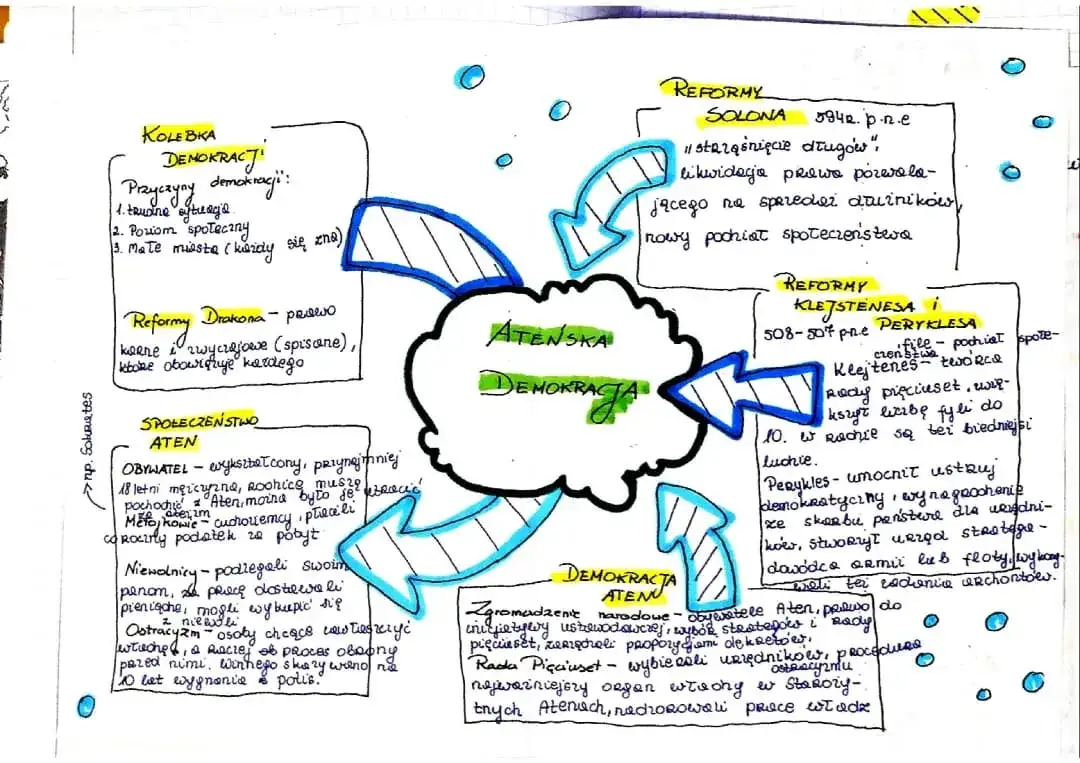 KOLEBKA
DEMOKRACJI
Przyczyny demokracji:
1. trudna sytuacja
2. Poziom społeczny
3. Małe miasta (każdy się zna)
Reformy Drakona - prawo
karne i zwyczajowe (spisane),
które obowiązuje każdego
REFORMY
SOLONA 594r. p.n.e
"strząśnięcie długów",
likwidacja prawa pozwala-
jącego na sprzedaż dłużników,
nowy podział społeczeństwa
ATEŃSKA
DEMOKRACJA
REFORMY
KLEJSTENESA i
PERYKLESA
508-507 p.n.e
file - podział społe-
czeństwa
Klejtenes - twórca
rady pięciuset, zwię-
kszył liczbę fyli do
10. w radzie są też biedniejsi
ludzie.
Perykles - umocnił ustrój
demokratyczny, wynagrodzenie
ze skarbu państwa dla urzędni-
ków, stworzył urząd stratega -
dowódca armii lub floty, wykony-
wali też zadania archontów.
→ np. Sokrates
SPOŁECZEŃSTWO
ATEN
OBYWATEL - wykształcony, przynajmniej
18 letni mężczyzna, rodzice muszą
pochodzić z Aten, można było je utracić
za
Metojkowie - cudzoziemcy, płacili
coroczny podatek za pobyt
Niewolnicy - podlegali swoim
panom, za pracę dostawali
pieniądze, mogli wykupić się
z niewoli
Ostracyzm - osoby chcące zawłaszczyć
władzę, a raczej proces obrony
przed nimi. Winnego skazywano na
10 lat wygnania z polis.
DEMOKRACJA
ATEN
Zgromadzenie narodowe - obywatele Aten, prawo do
inicjatywy ustawodawczej, wybór strategów i rady
pięciuset, zarządzali propozycjami dekretów,
Rada Pięciuset - wybierali urzędników, procedura
ostracyzmu
najważniejszy organ władzy w Staroży-
tnych Atenach, nadzorowali pracę władze